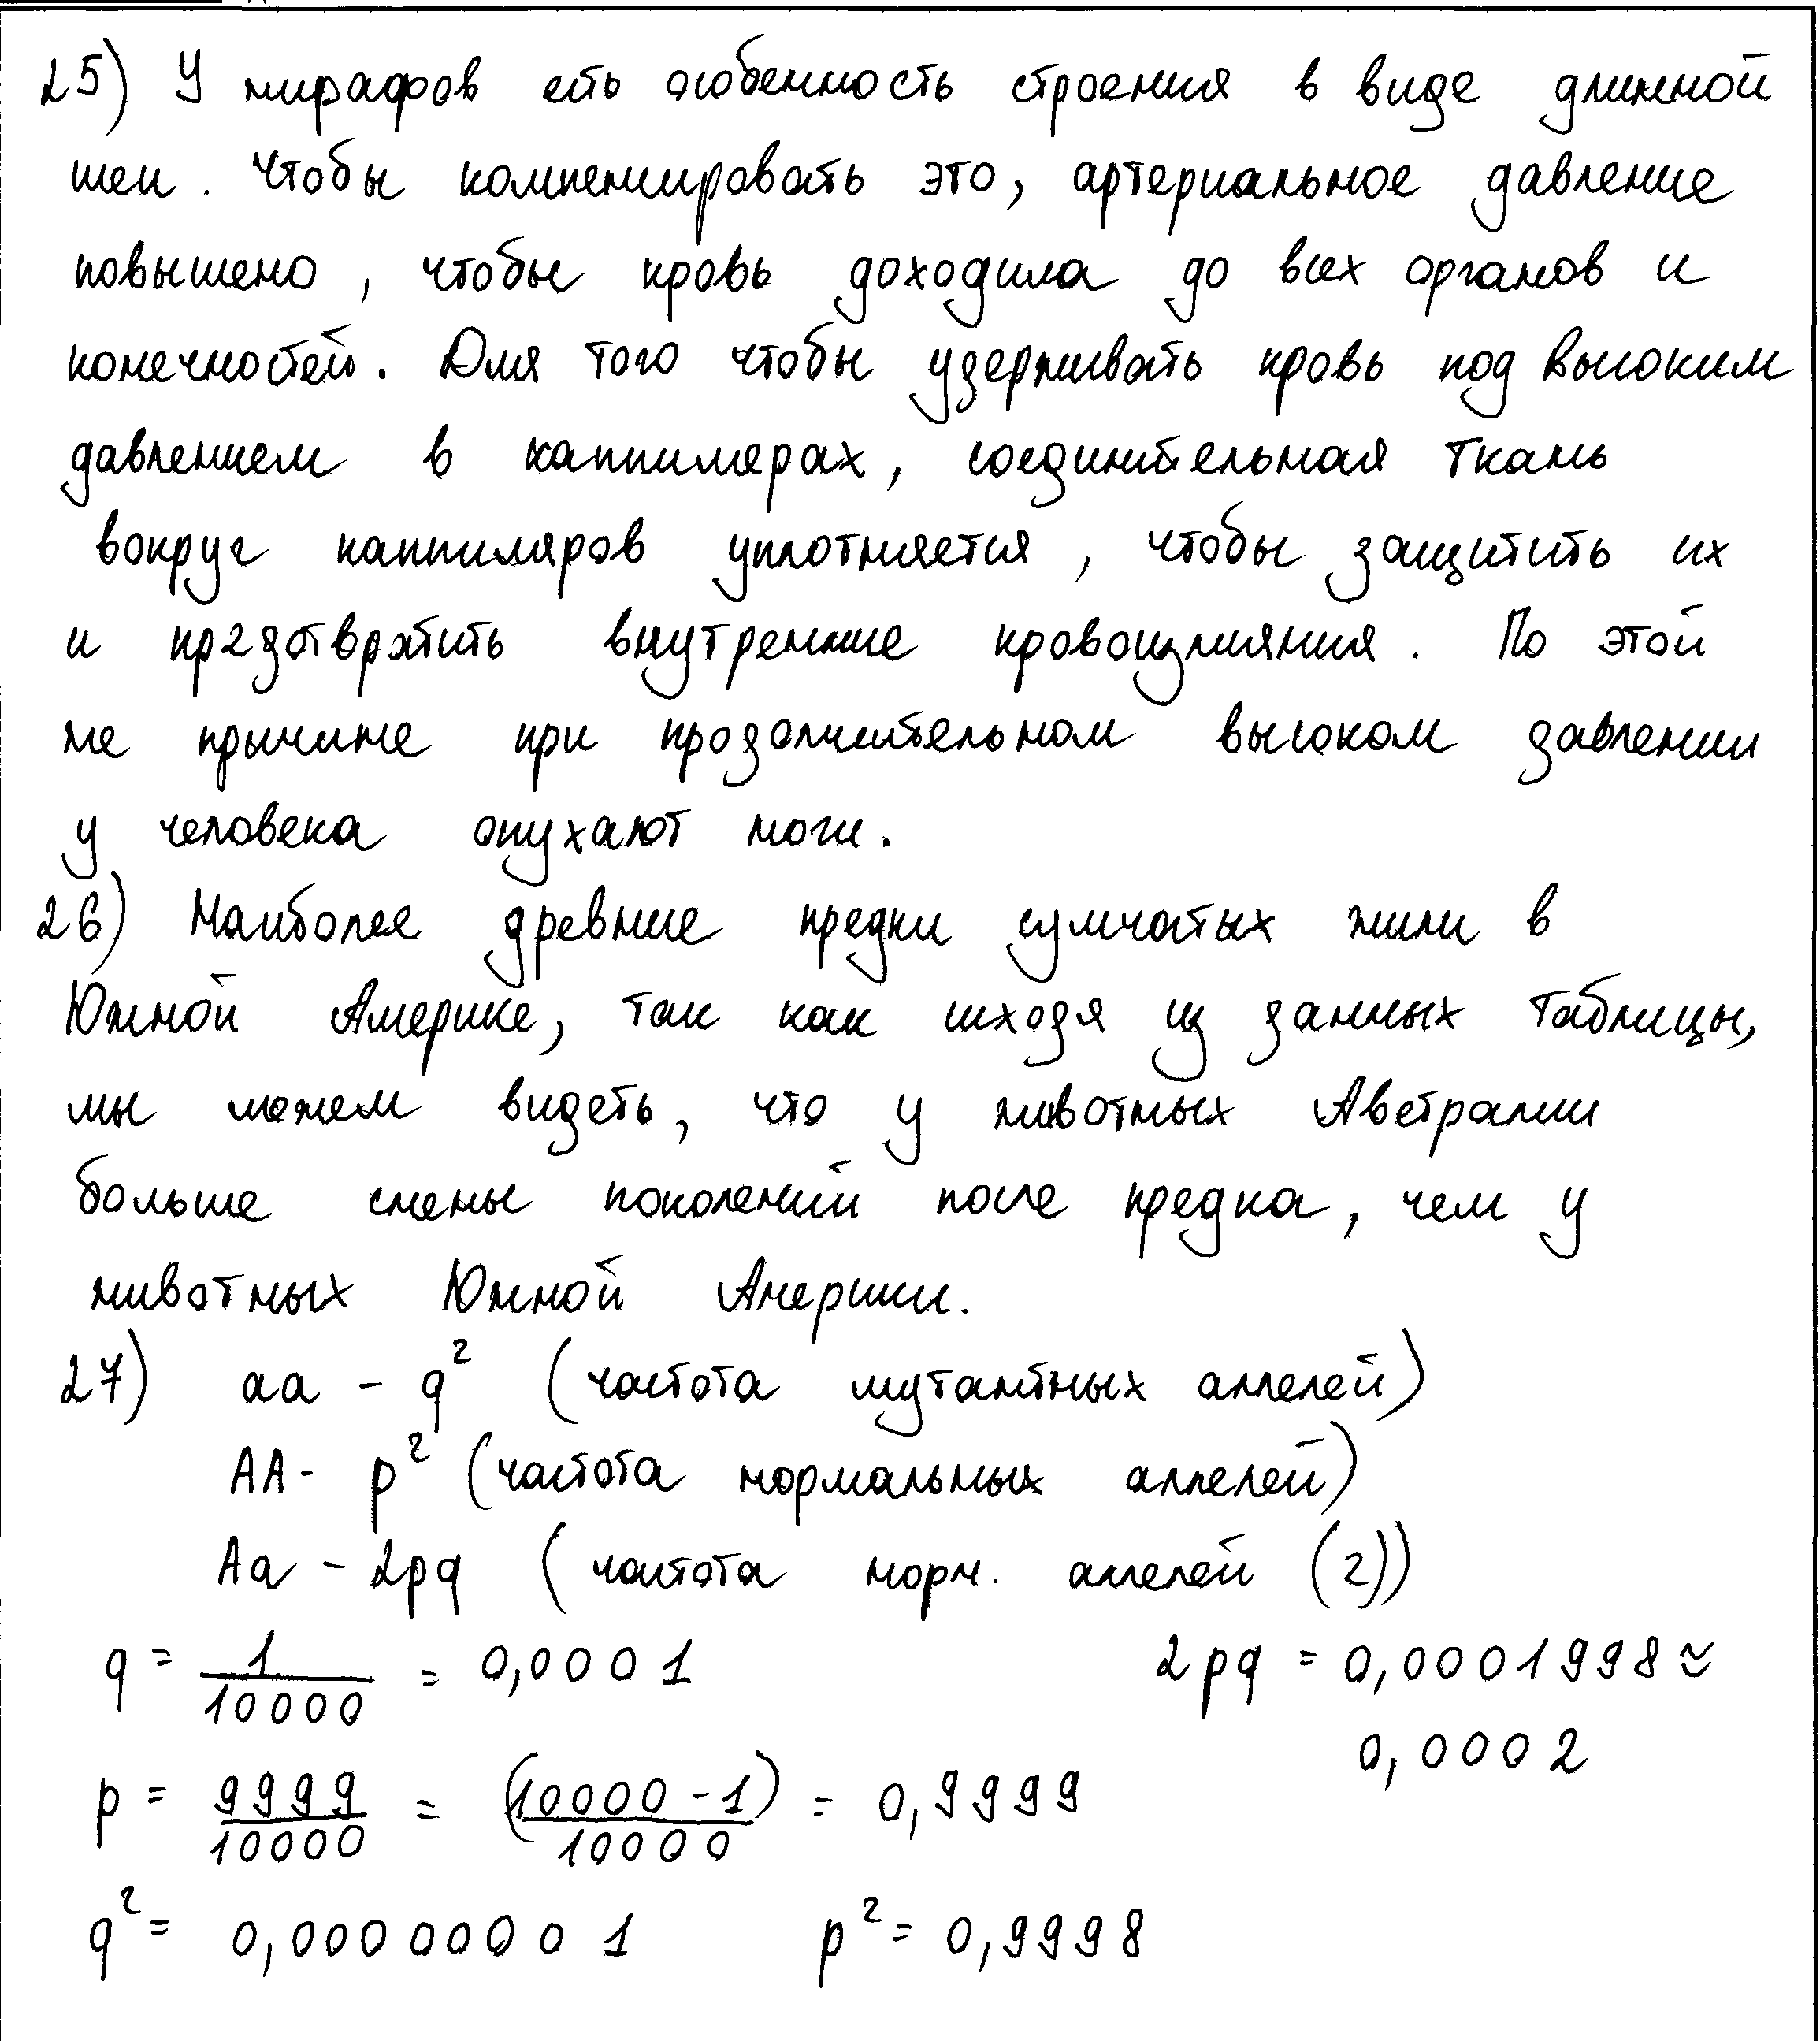 25) У жирафов есть особенность строения в виде длинной
шеи. Чтобы компенсировать это, артериальное давление
повышено, чтобы кровь доходила до всех органов и
конечностей. Для того чтобы удерживать кровь под высоким
давлением в каппилерах, соединительная ткань
вокруг каппиляров уплотняется, чтобы защитить их
и предотвратить внутренние кровоизлияния. По этой
же причине при продолжительном высоком давлении
у человека опухают ноги.
26) Наиболее древние предки сумчатых жили в
Южной Америке, так как исходя из данных таблицы,
мы можем видеть, что у животных Австралии
больше смены поколений после предка, чем у
животных Южной Америки.
27) aa - q² (частота мутантных аллелей)
AA - p² (частота нормальных аллелей)
Aa - 2pq (частота норм. аллелей (2))
q = 1/10000 = 0,0001 2pq = 0,0001998 ≈
0,0002
p = 9999/10000 = (10000 - 1)/10000 = 0,9999
q² = 0,00000001 p² = 0,9998